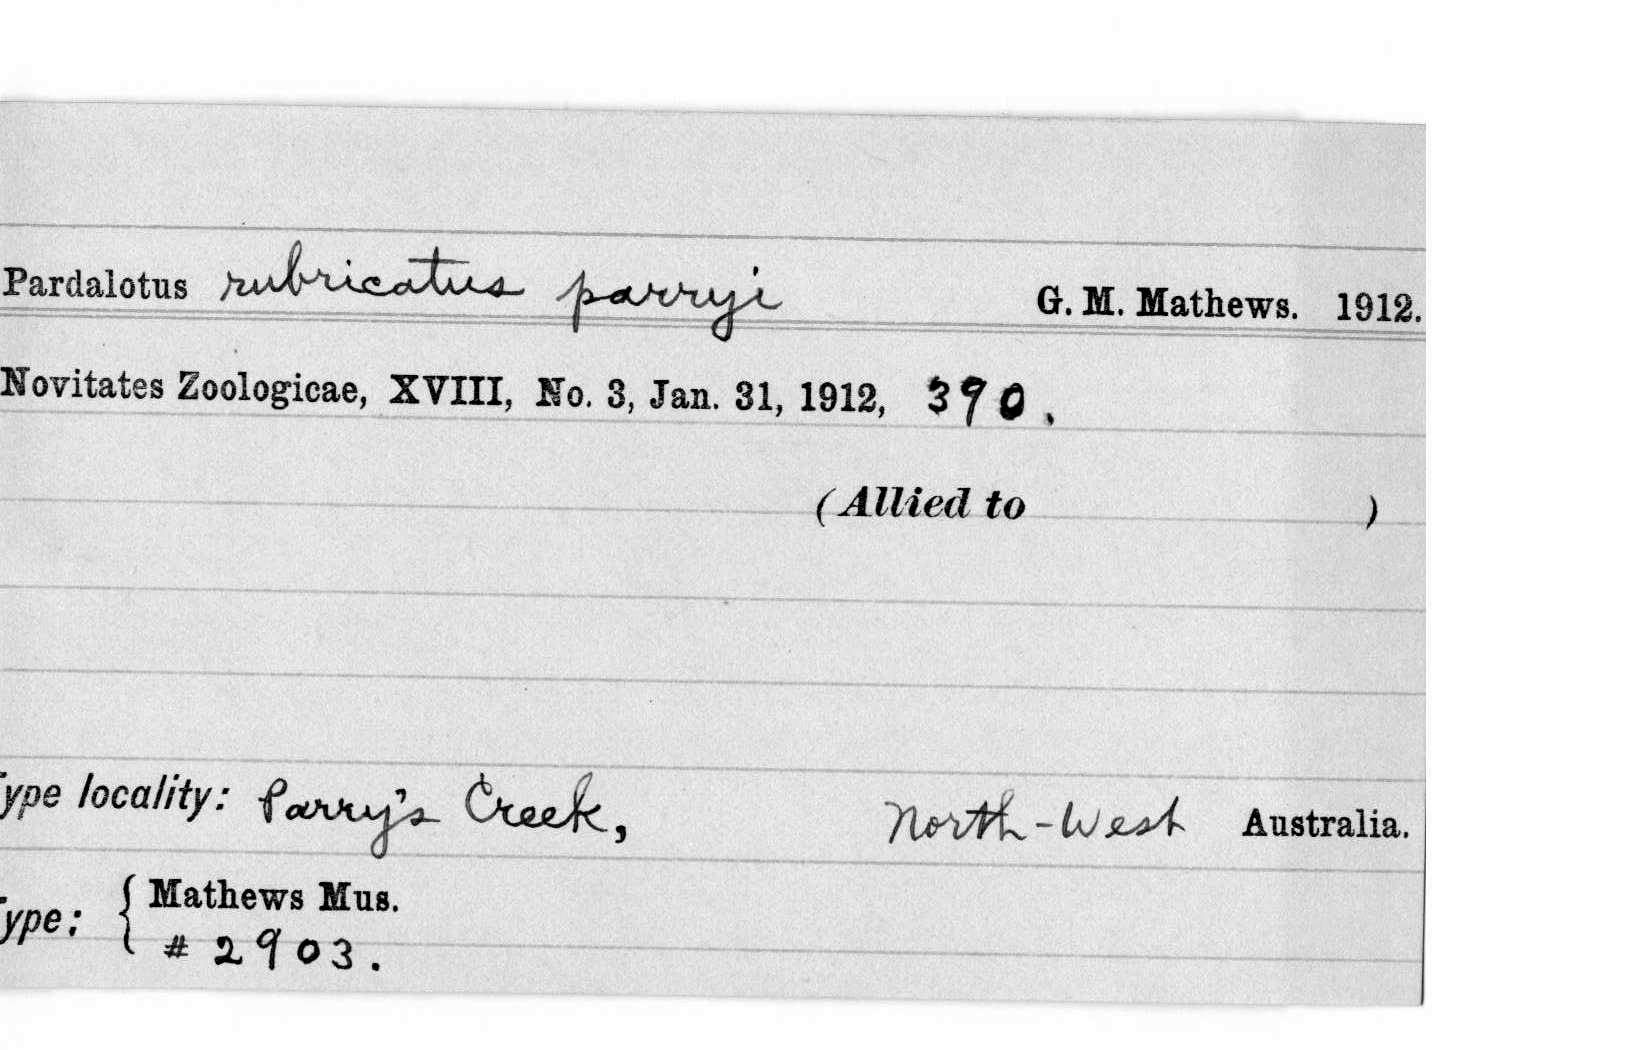 Pardalotus rubricatus parryi G. M. Mathews. 1912.
Novitates Zoologicae, XVIII, No. 3, Jan. 31, 1912, 390.
(Allied to )
Type locality: Parry's Creek, North-West Australia.
Type: { Mathews Mus.
# 2903.